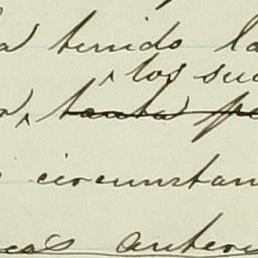 a tenido la
los suc
r, tanta pe
circunstan
cas anteri